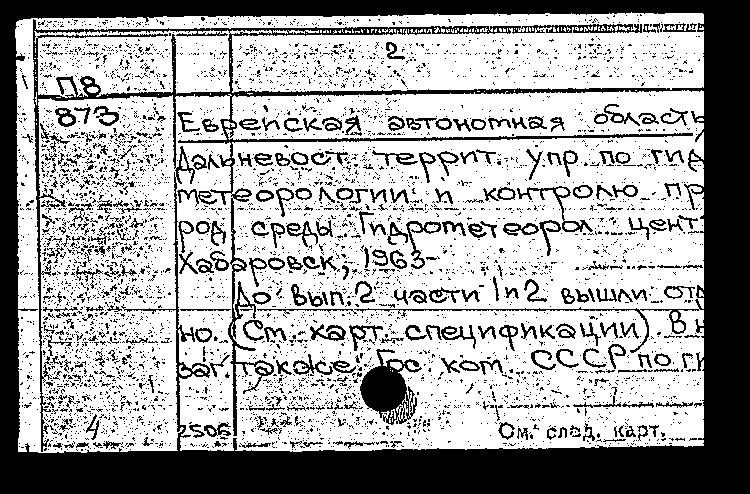 2
П8
873
Еврейская автономная область
Дальневост. террит. упр. по гид
метеорологии и контролю пр
род. среды. Гидрометеорол. цент
Хабаровск, 1963-
До вып. 2 части 1и2 вышли отд
но. (См. карт. спецификации). В н
заг. также: Гос. ком. СССР по ги
4
2506
См. след. карт.